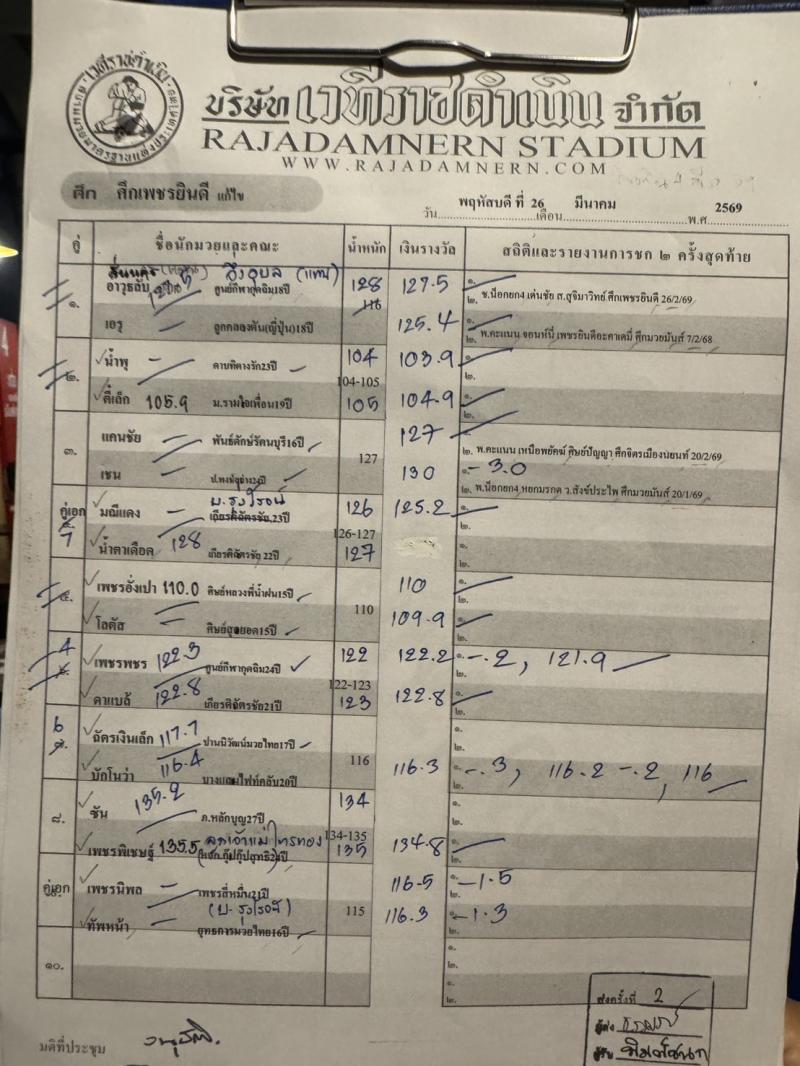 บริษัท เวทีราชดำเนิน จำกัด
RAJADAMNERN STADIUM
WWW.RAJADAMNERN.COM
ศึก ศึกเพชรยินดี แก้ไข
วัน พฤหัสบดี ที่ 26 เดือน มีนาคม พ.ศ 2569
คู่ ชื่อนักมวยและคณะ น้ำหนัก เงินรางวัล สถิติและรายงานการชก ๒ ครั้งสุดท้าย
อึ่งอุบล (แทน) 128 127.5 ๑.
อาวุธลับ ศูนย์กีฬากุดฉิม18ปี 116 ๒. ช.น็อกยก4 เด่นชัย ส.สุจิมาวิทย์ ศึกเพชรยินดี 26/2/69
๑.
เอรุ ลูกคลองตัน(ญี่ปุ่น)18ปี 125.4 ๑.
๒. พ.คะแนน จอนห์นี่ เพชรยินดีอะคาเดมี่ ศึกมวยมันส์ 7/2/68
น้ำพุ ดาบพิตางรัก23ปี 104 103.9 ๑.
๒. 104-105 ๒.
ตี๋เล็ก 105.9 ม.รามใจเพื่อน19ปี 105 104.9 ๑.
๒.
แคนชัย พันธ์ดักษ์รัตนบุรี16ปี 127 ๑.
๓. 127 ๒. พ.คะแนน เหนือพยัคฆ์ ศิษย์ปัญญา ศึกจิตรเมืองนนท์ 20/2/69
เชน 130 ๑. - 3.0
๒. พ.น็อกยก4 หยกมรกต ว.สังข์ประไพ ศึกมวยมันส์ 20/1/69
บ.รุ่งโรจน์
คู่เอก มณีแดง เกียรติฉัตรชัย.23ปี 126 125.2 ๑.
7 126-127 ๒.
น้ำตาเดือด 128 เกียรติฉัตรชัย 22ปี 127 ๑.
๒.
เพชรอั่งเปา 110.0 ศิษย์หลวงพี่น้ำฝน15ปี 110 ๑.
๕. 110 ๒.
โลตัส ศิษย์สุดยอด15ปี 109.9 ๑.
๒.
4 เพชรพชร 122.3 ศูนย์กีฬากุดฉิม24ปี 122 122.2 ๑. -.2, 121.9
122-123 ๒.
ดาแบล้ 122.8 เกียรติฉัตรชัย21ปี 123 122.8 ๑.
๒.
6 ฉัตรเงินเล็ก 117.7 ปานนิวัฒน์มวยไทย17ปี ๑.
๗. 116 ๒.
บักโนว่า 116.4 บางแสนไฟท์คลับ20ปี 116.3 ๑. -.3, 116.2 -.2, 116
๒.
ซัน 135.2 ภ.หลักบุญ27ปี 134 ๑.
๘. 134-135 ๒.
ลูกเจ้าแม่ไทรทอง
เพชรพิเชษฐ์ 135.5 135 134.8 ๑.
๒.
คู่เอก เพชรนิพล เพชรสี่หมื่น21ปี 116.5 ๑. -1.5
115 ๒.
(บ.รุ่งโรจน์)
ทัพหน้า ยุทธการมวยไทย16ปี 116.3 ๑. -1.3
๒.
๑๐. ๑.
๒.
๑.
๒.
มติที่ประชุม
ส่งครั้งที่ 2
ผู้ส่ง
ผู้รับ